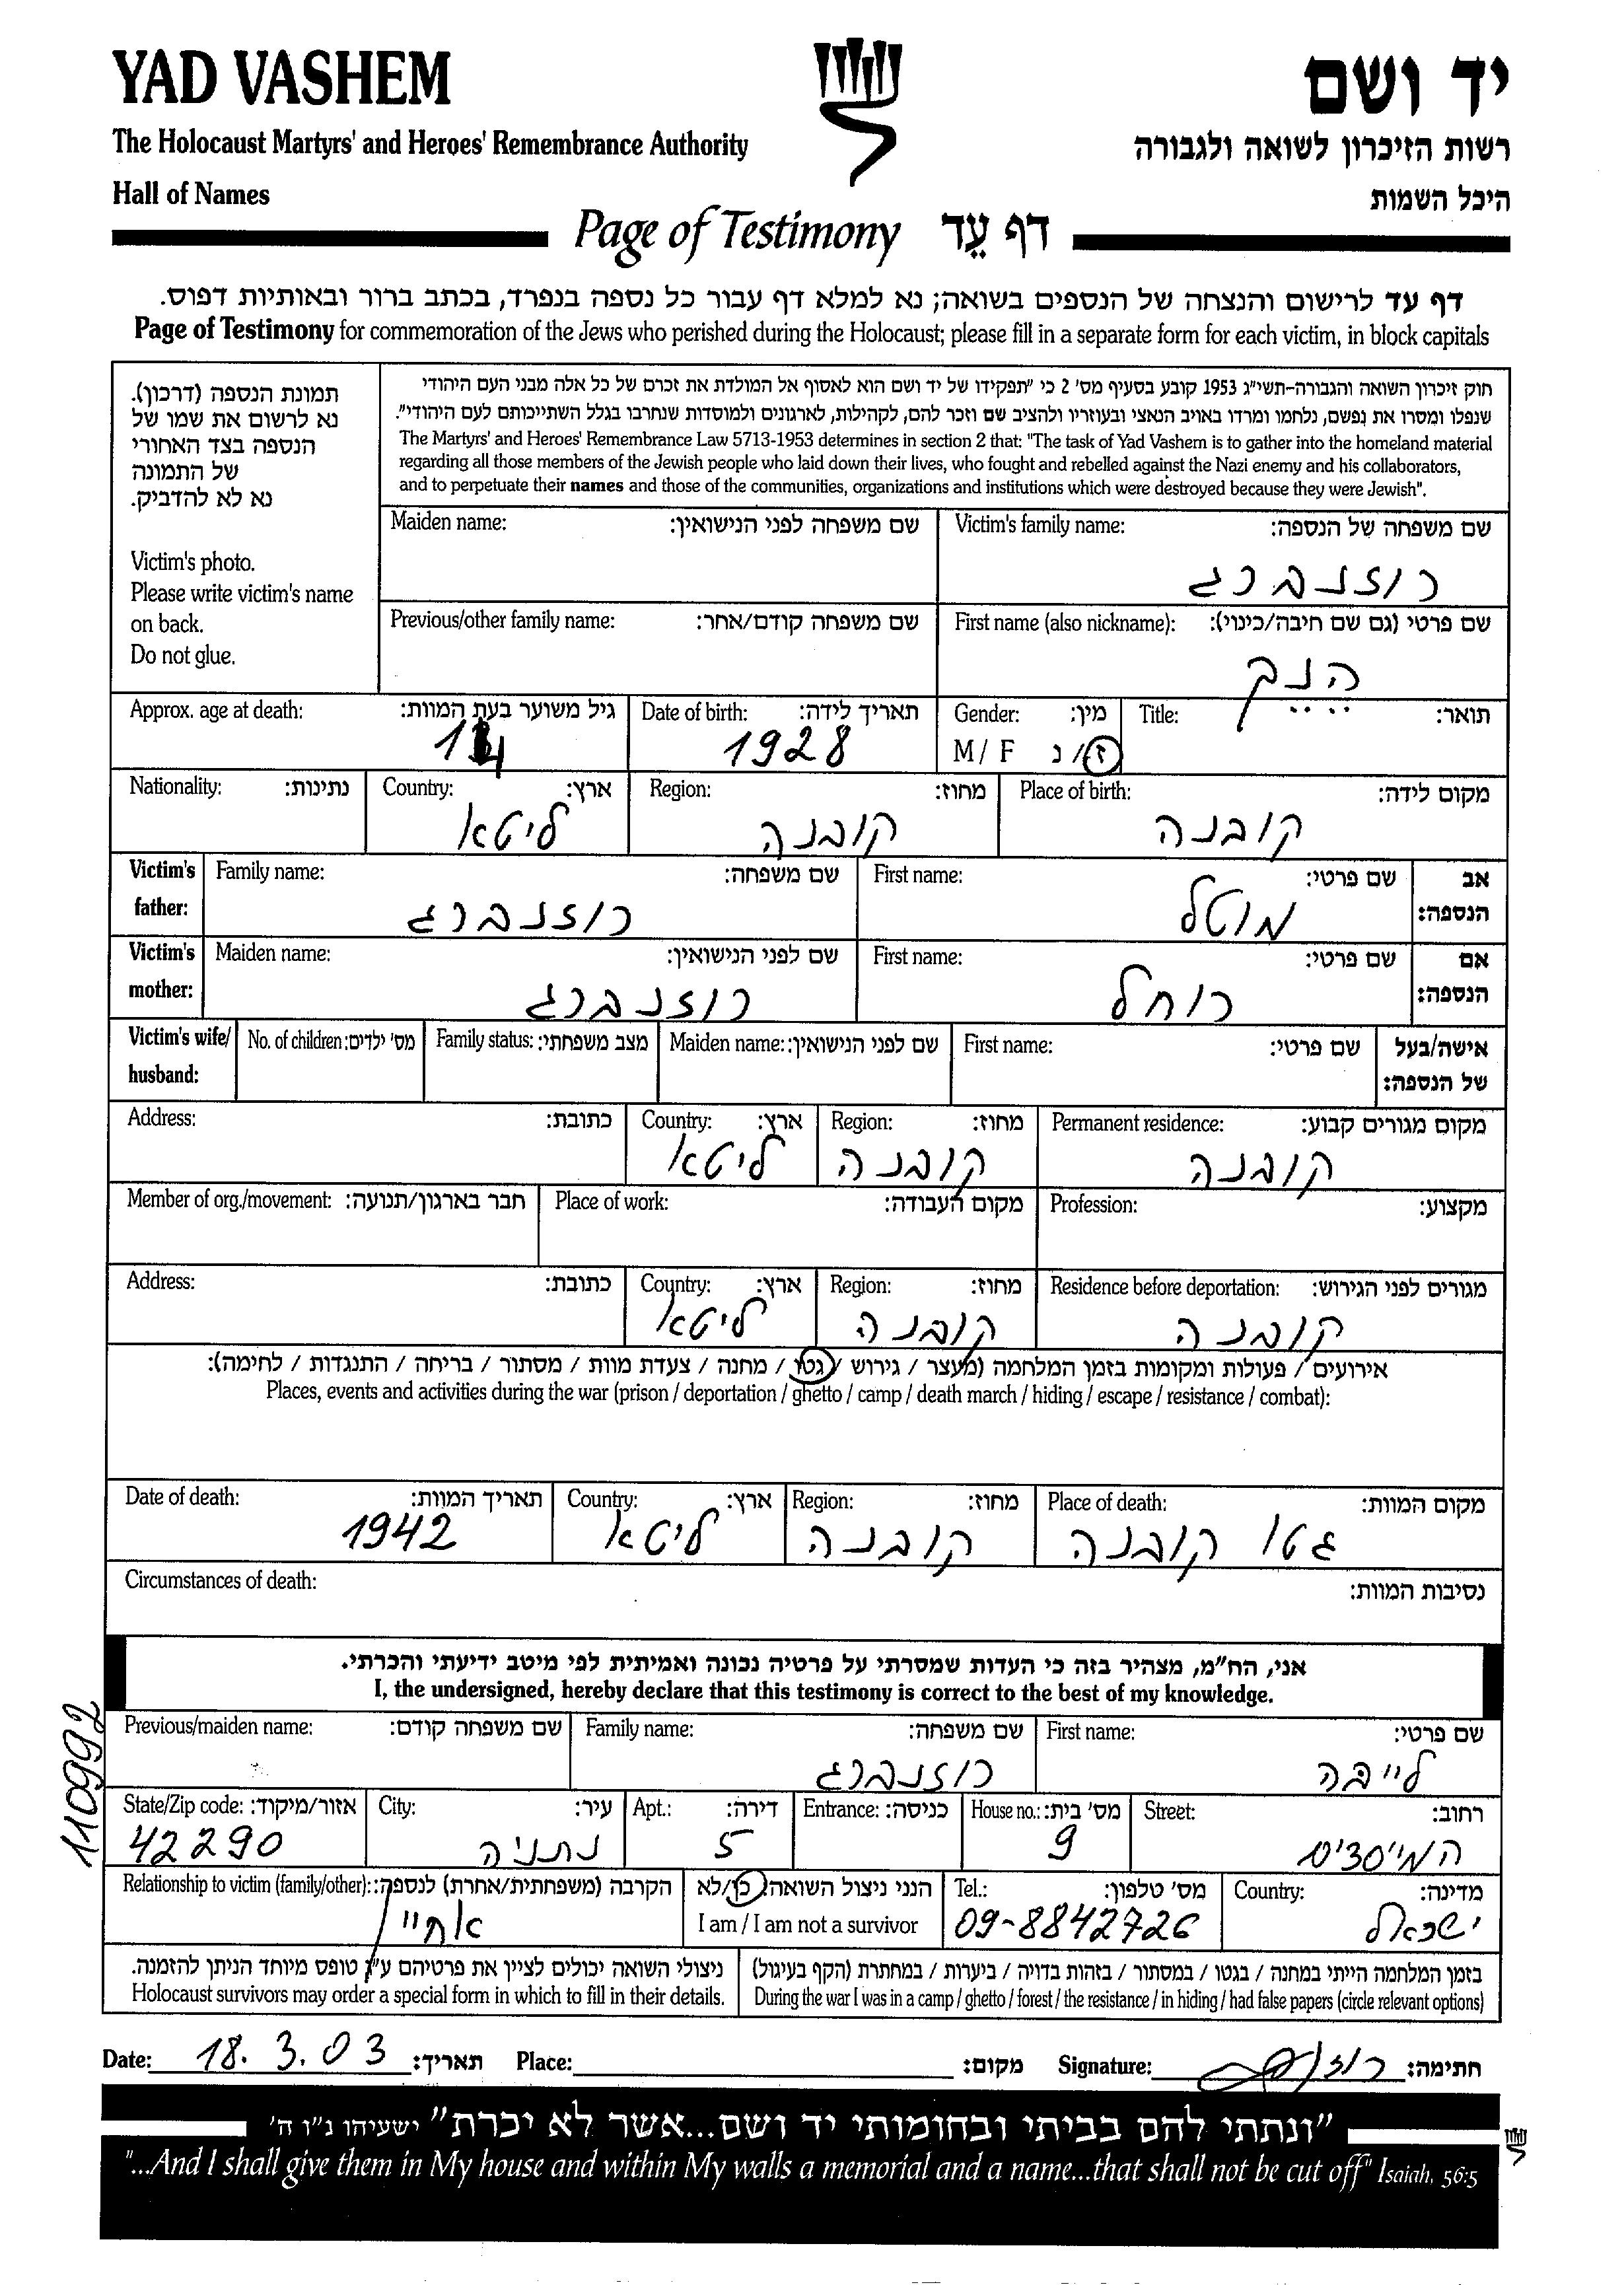 YAD VASHEM
יד ושם
The Holocaust Martyrs' and Heroes' Remembrance Authority
רשות הזיכרון לשואה ולגבורה
Hall of Names
היכל השמות
Page of Testimony דף עֵד
דף עד לרישום והנצחה של הנספים בשואה; נא למלא דף עבור כל נספה בנפרד, בכתב ברור ובאותיות דפוס.
Page of Testimony for commemoration of the Jews who perished during the Holocaust; please fill in a separate form for each victim, in block capitals
תמונת הנספה (דרכון).
נא לרשום את שמו של
הנספה בצד האחורי
של התמונה
נא לא להדביק.
Victim's photo.
Please write victim's name
on back.
Do not glue.
חוק זיכרון השואה והגבורה-תשי"ג 1953 קובע בסעיף מס' 2 כי "תפקידו של יד ושם הוא לאסוף אל המולדת את זכרם של כל אלה מבני העם היהודי
שנפלו ומסרו את נפשם, נלחמו ומרדו באויב הנאצי ובעוזריו ולהציב שם וזכר להם, לקהילות, לארגונים ולמוסדות שנחרבו בגלל השתייכותם לעם היהודי".
The Martyrs' and Heroes' Remembrance Law 5713-1953 determines in section 2 that: "The task of Yad Vashem is to gather into the homeland material
regarding all those members of the Jewish people who laid down their lives, who fought and rebelled against the Nazi enemy and his collaborators,
and to perpetuate their names and those of the communities, organizations and institutions which were destroyed because they were Jewish".
Victim's family name: שם משפחה של הנספה:
רוזנברג
Maiden name: שם משפחה לפני הנישואין:
First name (also nickname): שם פרטי (גם שם חיבה/כינוי):
הֵנֵק
Previous/other family name: שם משפחה קודם/אחר:
Title: תואר:
Gender: מין:
M / F ז/נ
Date of birth: תאריך לידה:
1928
Approx. age at death: גיל משוער בעת המוות:
14
Place of birth: מקום לידה:
קובנה
Region: מחוז:
קובנה
Country: ארץ:
ליטא
Nationality: נתינות:
Victim's father: אב הנספה:
First name: שם פרטי:
מוטל
Family name: שם משפחה:
רוזנברג
Victim's mother: אם הנספה:
First name: שם פרטי:
רוחל
Maiden name: שם לפני הנישואין:
רוזנברג
Victim's wife/ husband: אישה/בעל של הנספה:
First name: שם פרטי:
Maiden name: שם לפני הנישואין:
Family status: מצב משפחתי:
No. of children: מס' ילדים:
Permanent residence: מקום מגורים קבוע:
קובנה
Region: מחוז:
קובנה
Country: ארץ:
ליטא
Address: כתובת:
Profession: מקצוע:
Place of work: מקום העבודה:
Member of org./movement: חבר בארגון/תנועה:
Residence before deportation: מגורים לפני הגירוש:
קובנה
Region: מחוז:
קובנה
Country: ארץ:
ליטא
Address: כתובת:
אירועים / פעולות ומקומות בזמן המלחמה (מעצר / גירוש / גטו / מחנה / צעדת מוות / מסתור / בריחה / התנגדות / לחימה):
Places, events and activities during the war (prison / deportation / ghetto / camp / death march / hiding / escape / resistance / combat):
Place of death: מקום המוות:
גטו קובנה
Region: מחוז:
קובנה
Country: ארץ:
ליטא
Date of death: תאריך המוות:
1942
Circumstances of death: נסיבות המוות:
אני, הח"מ, מצהיר בזה כי העדות שמסרתי על פרטיה נכונה ואמיתית לפי מיטב ידיעתי והכרתי.
I, the undersigned, hereby declare that this testimony is correct to the best of my knowledge.
110992
First name: שם פרטי:
לייבה
Family name: שם משפחה:
רוזנברג
Previous/maiden name: שם משפחה קודם:
Street: רחוב:
House no.: מס' בית:
9
Entrance: כניסה:
Apt.: דירה:
5
City: עיר:
נתניה
State/Zip code: אזור/מיקוד:
42290
Country: מדינה:
ישראל
Tel.: מס' טלפון:
09-8842726
הנני ניצול השואה: כן/לא
I am / I am not a survivor
Relationship to victim (family/other): הקרבה (משפחתית/אחרת) לנספה:
בזמן המלחמה הייתי במחנה / בגטו / במסתור / בזהות בדויה / ביערות / במחתרת (הקף בעיגול)
During the war I was in a camp / ghetto / forest / the resistance / in hiding / had false papers (circle relevant options)
ניצולי השואה יכולים לציין את פרטיהם ע"ג טופס מיוחד הניתן להזמנה.
Holocaust survivors may order a special form in which to fill in their details.
Date: 18.3.03 תאריך: Place: מקום: Signature: חתימה:
"ונתתי להם בביתי ובחומותי יד ושם...אשר לא יכרת" ישעיהו נ"ו ה'
"...And I shall give them in My house and within My walls a memorial and a name...that shall not be cut off" Isaiah, 56:5